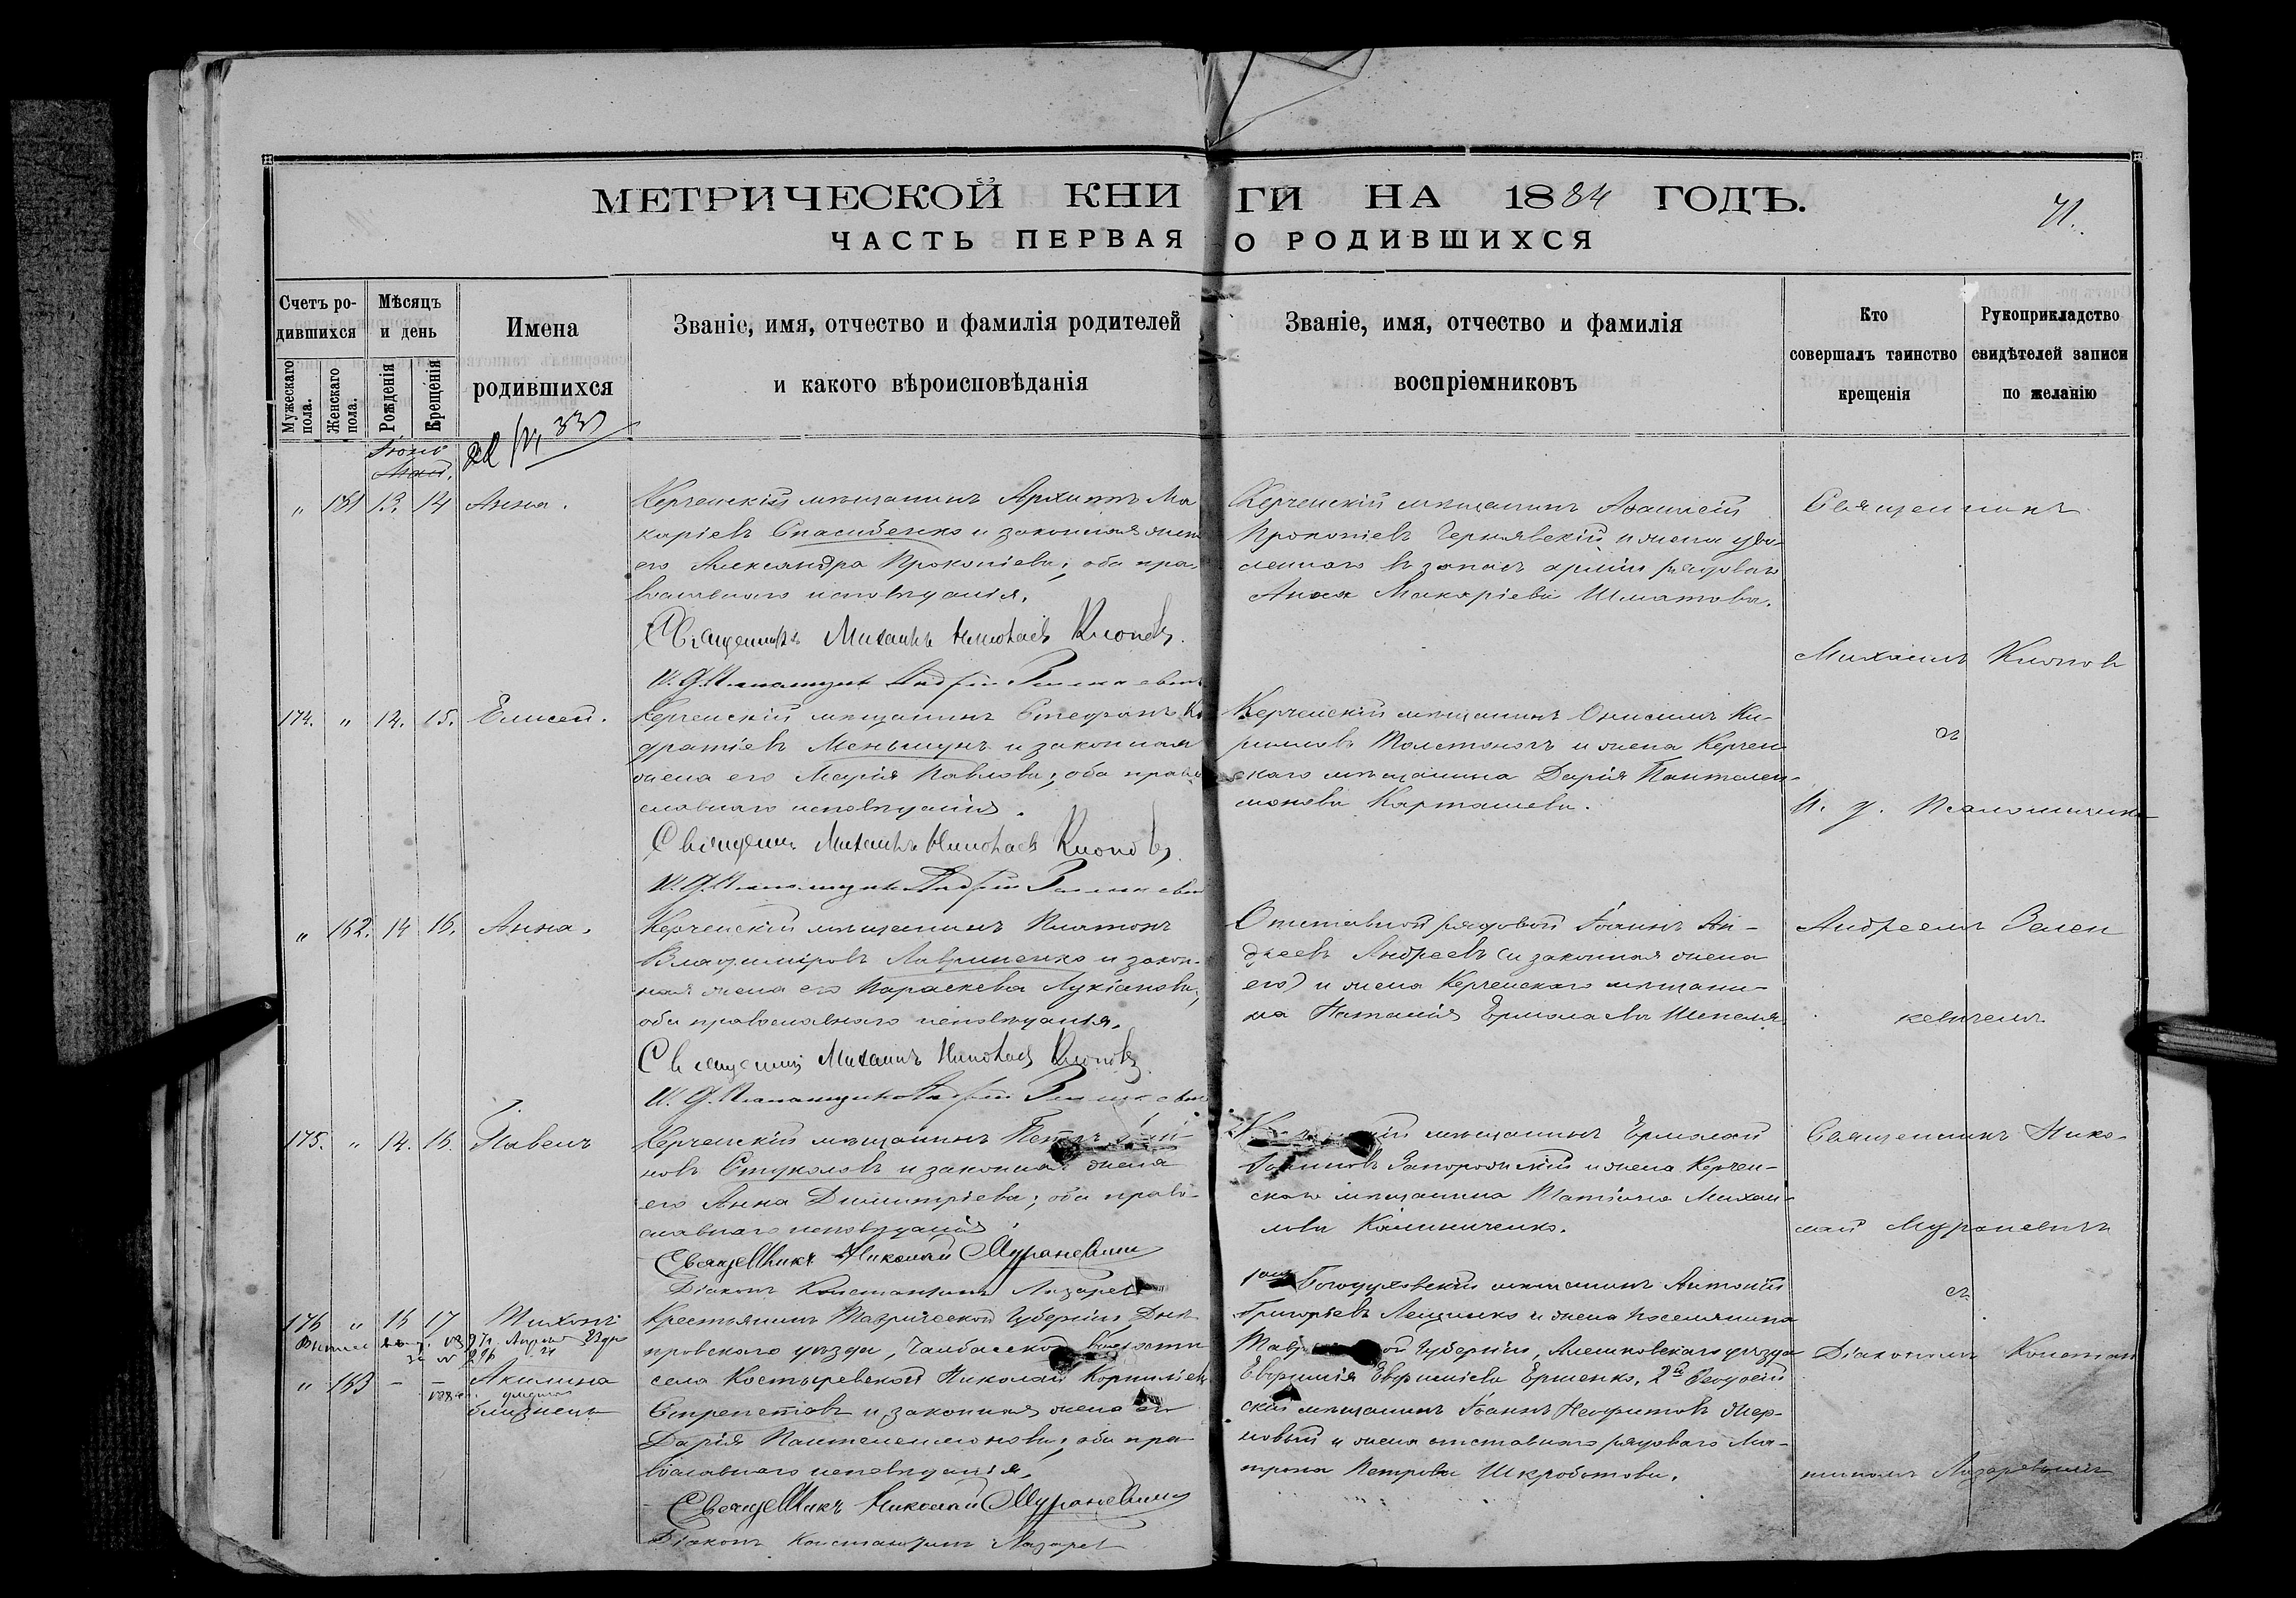 МЕТРИЧЕСКОЙ КНИГИ НА 1884 ГОДЪ.
71.
ЧАСТЬ ПЕРВАЯ О РОДИВШИХСЯ
Счетъ родившихся
Мужескаго пола.
Женскаго пола.
Мѣсяцъ и день
Рожденія
Крещенія
Имена родившихся
Званіе, имя, отчество и фамилія родителей
и какого вѣроисповѣданія
Званіе, имя, отчество и фамилія
воспріемниковъ
Кто совершалъ таинство крещенія
Рукоприкладство свидѣтелей записи по желанію
Іюнь
Май.
" 181 13. 14 Анна.
Керченскій мѣщанинъ Архипъ Ма
каріевъ Спасибенко и законная жена
его Александра Прокопіева; оба пра
вославнаго исповѣданія.
Священникъ Михаилъ Николаевъ Клоповъ.
Керченскій мѣщанинъ
Прокопіевъ Чернявскій и жена уво
леннаго въ запасъ арміи рядоваго
Анна Макаріева Шматова.
Священникъ
Михаилъ Клоповъ
174. " 14. 15. Елисей.
Керченскій мѣщанинъ Стефанъ
дратіевъ Меньшунъ и законная
жена его Марія Павлова; оба право
славнаго исповѣданія.
Священникъ Михаилъ Николаевъ Клоповъ
Керченскій мѣщанинъ Онисимъ Ки-
рилловъ и жена Керчен
скаго мѣщанина Дарія Пантелеи-
монова Карташева.
съ
И. д. Псаломщика
" 182. 14 16. Анна.
Керченскій мѣщанинъ Платонъ
Владиміровъ Лавриненко и закон-
ная жена его Параскева Лукіанова;
оба православнаго исповѣданія.
Священникъ Михаилъ Николаевъ Клоповъ
Отставной рядовой Іоаннъ Ан-
дреевъ Андреевъ (и законная жена
его) и жена Керченскаго мѣщани-
на Наталія Ермолаева Шепеля
Андреемъ Зелен
кевичемъ.
175. " 14. 16. Павелъ
Керченскій мѣщанинъ Петръ Іоан-
новъ Стуколовъ и законная жена
его Анна Димитріева; оба право-
славнаго исповѣданія.
Священникъ Николай Мураневичъ
Діаконъ Константинъ Лазаре
мѣщанинъ Ермолай
Іоанновъ Запорожскій и жена Керчен-
скаго мѣщанина Татіана Михаи-
лова Калиниченко.
Священникъ Нико-
лай Мураневичъ
176 " 16 17 Тихонъ
" 183 — — Акилина
близнецы
Крестьянинъ Таврической Губерніи, Днѣ
провскаго уѣзда, Чалбасской волости
села Костыревской Николай Корниліевъ
Стрепетовъ и законная жена его
Дарія Пантелеимонова; оба пра
вославнаго исповѣданія.
Священникъ Николай Мураневичъ
Діаконъ Константинъ Лазаре
мѣщанинъ Антоній
Григорьевъ Лещенко и жена поселянина
Губерніи, Алешковскаго уѣзда
Евфимія Евфиміева Ершенко, 2й Ѳеодосій
скій мѣщанинъ Іоаннъ Неофитовъ Жер-
новый и жена отставнаго рядоваго Ма-
трона Петрова Шкроботова.
съ
Діакономъ Констан
тиномъ Лазаревымъ